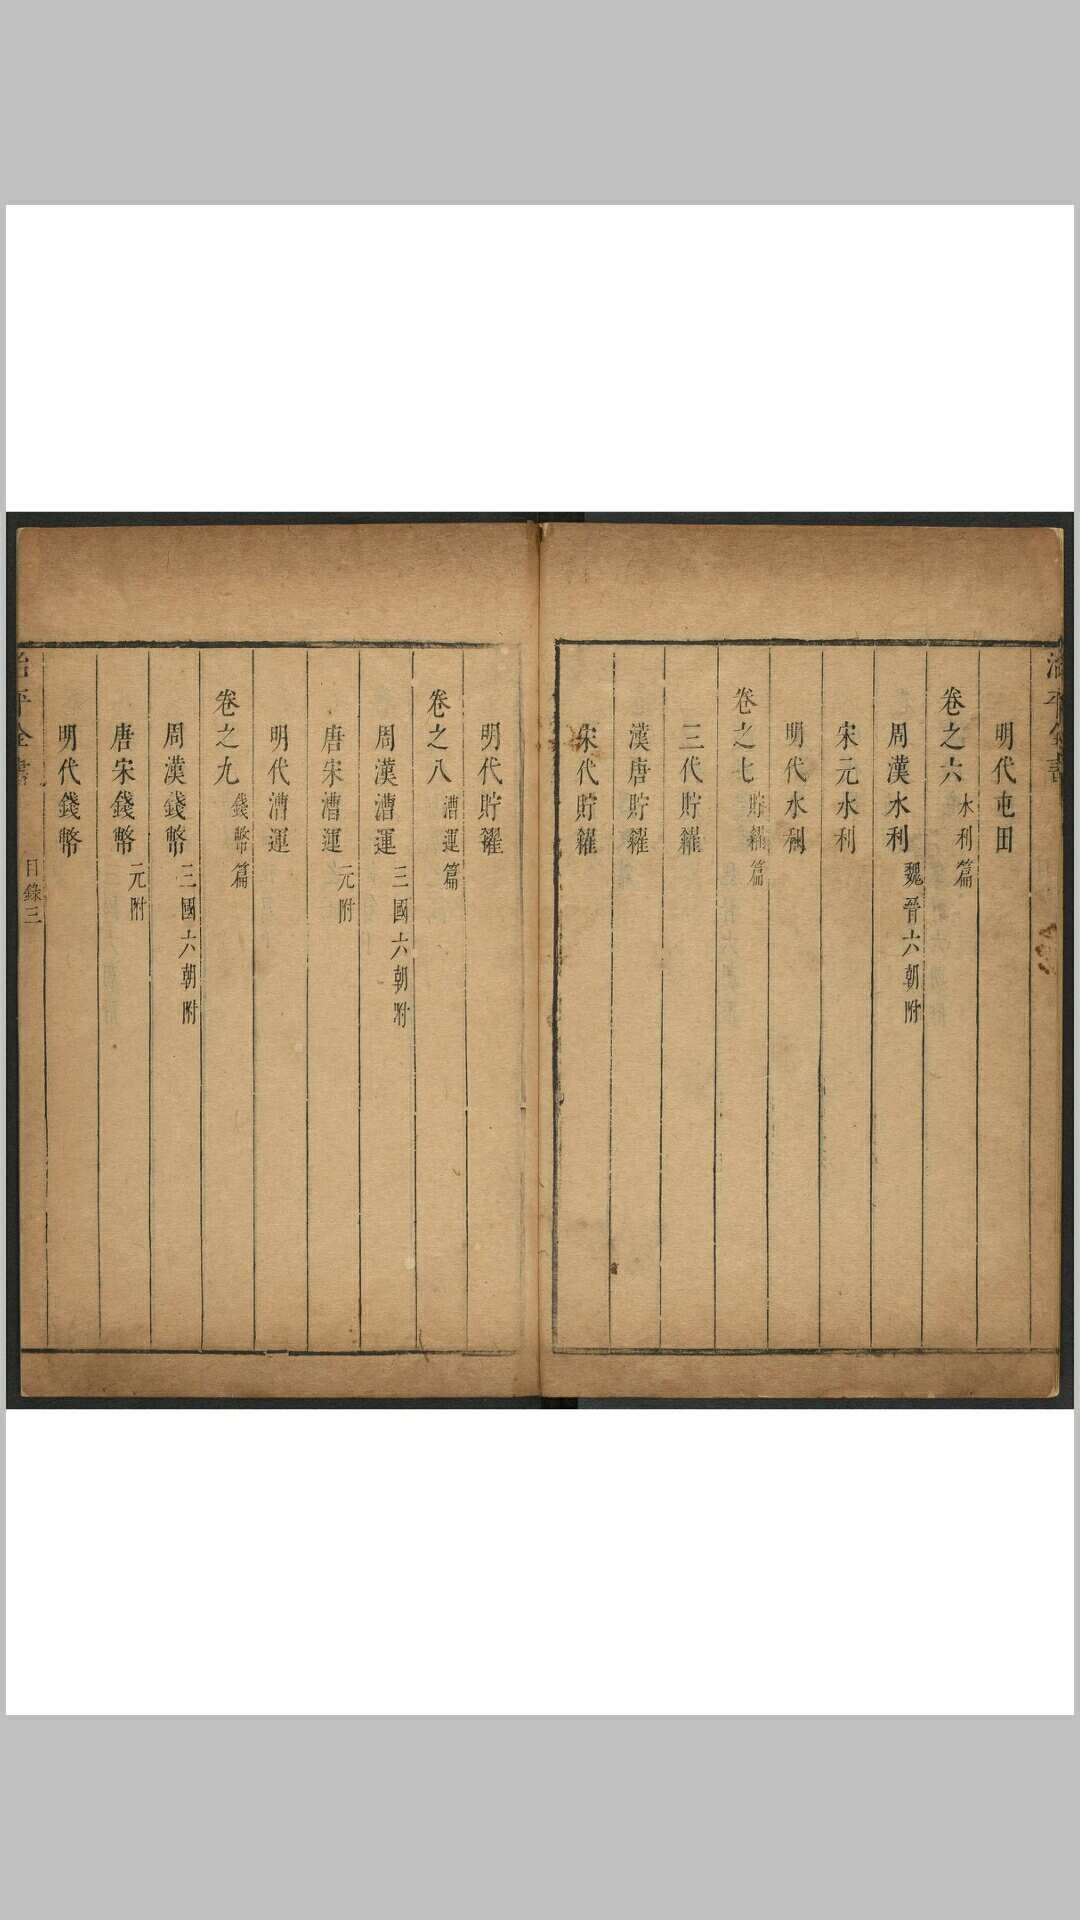 明代屯田
卷之六 水利篇
周漢水利 魏晉六朝附
宋元水利
明代水利
卷之七 貯糴篇
三代貯糴
漢唐貯糴
宋代貯糴
明代貯糴
卷之八 漕運篇
周漢漕運 三國六朝附
唐宋漕運 元附
明代漕運
卷之九 錢幣篇
周漢錢幣 三國六朝附
唐宋錢幣 元附
明代錢幣
治平全書 目錄三